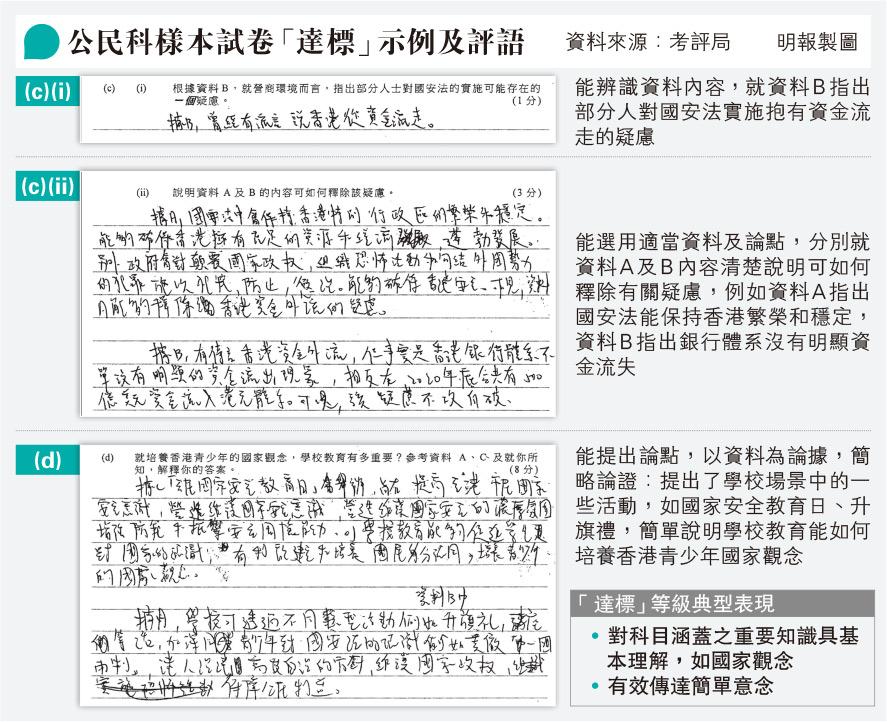 公民科樣本試卷「達標」示例及評語
資料來源：考評局
明報製圖
(c)(i)
(c) (i) 根據資料B，就營商環境而言，指出部分人士對國安法的實施可能存在的
一個疑慮。 (1 分)
據B，曾經有流言說香港從資金流走。
能辨識資料內容，就資料B指出
部分人對國安法實施抱有資金流
走的疑慮
(c)(ii)
(ii) 說明資料 A 及 B 的內容可如何釋除該疑慮。 (3 分)
國安法中會保持香港特別行政區的繁榮和穩定。
能夠確保香港擁有充足的資源和經濟蓬勃發展。
政府有對顛覆國家政權，組織恐怖活動和勾結外國勢力
的犯罪 防止，懲治。能夠確保香港安全。可見，資料
能夠釋除 香港資金外流的疑慮。
據B，有傳言香港資金外流，但事實是香港銀行體系不
單沒有明顯的資金流出現象，相反在2020年底合共有500
億美元資金流入港元體系。可見，該疑慮不攻自破。
能選用適當資料及論點，分別就
資料A及B內容清楚說明可如何
釋除有關疑慮，例如資料A指出
國安法能保持香港繁榮和穩定，
資料B指出銀行體系沒有明顯資
金流失
(d)
(d) 就培養香港青少年的國家觀念，學校教育有多重要？參考資料 A、C 及就你所
知，解釋你的答案。 (8 分)
「全民國家安全教育日」 提高全港市民國家
安全意識，營造維護國家安全 的濃厚氛圍
增強防範和抵禦安全風險能力。 學校教育能夠促進學生
對國家的認識， 有利於 培養國民身份認同，培養青少年
的國家觀念。
資料B中
學校可透過不同類型活動例如升旗禮，
加深 青少年對國安法的認識例如 一國
兩制，港人治港 高度自治的方針，維護國家政權，
能提出論點，以資料為論據，簡
略論證：提出了學校場景中的一
些活動，如國家安全教育日、升
旗禮，簡單說明學校教育能如何
培養香港青少年國家觀念
「達標」等級典型表現
• 對科目涵蓋之重要知識具基
本理解，如國家觀念
• 有效傳達簡單意念